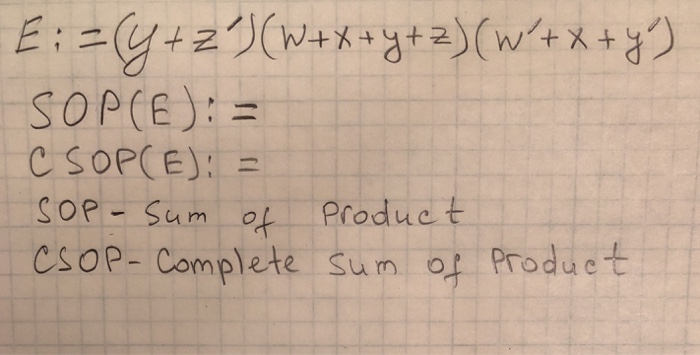 E:=(y+z')(w+x+y+z)(w'+x+y')
SOP(E):=
CSOP(E):=
SOP- Sum of Product
CSOP- Complete Sum of Product